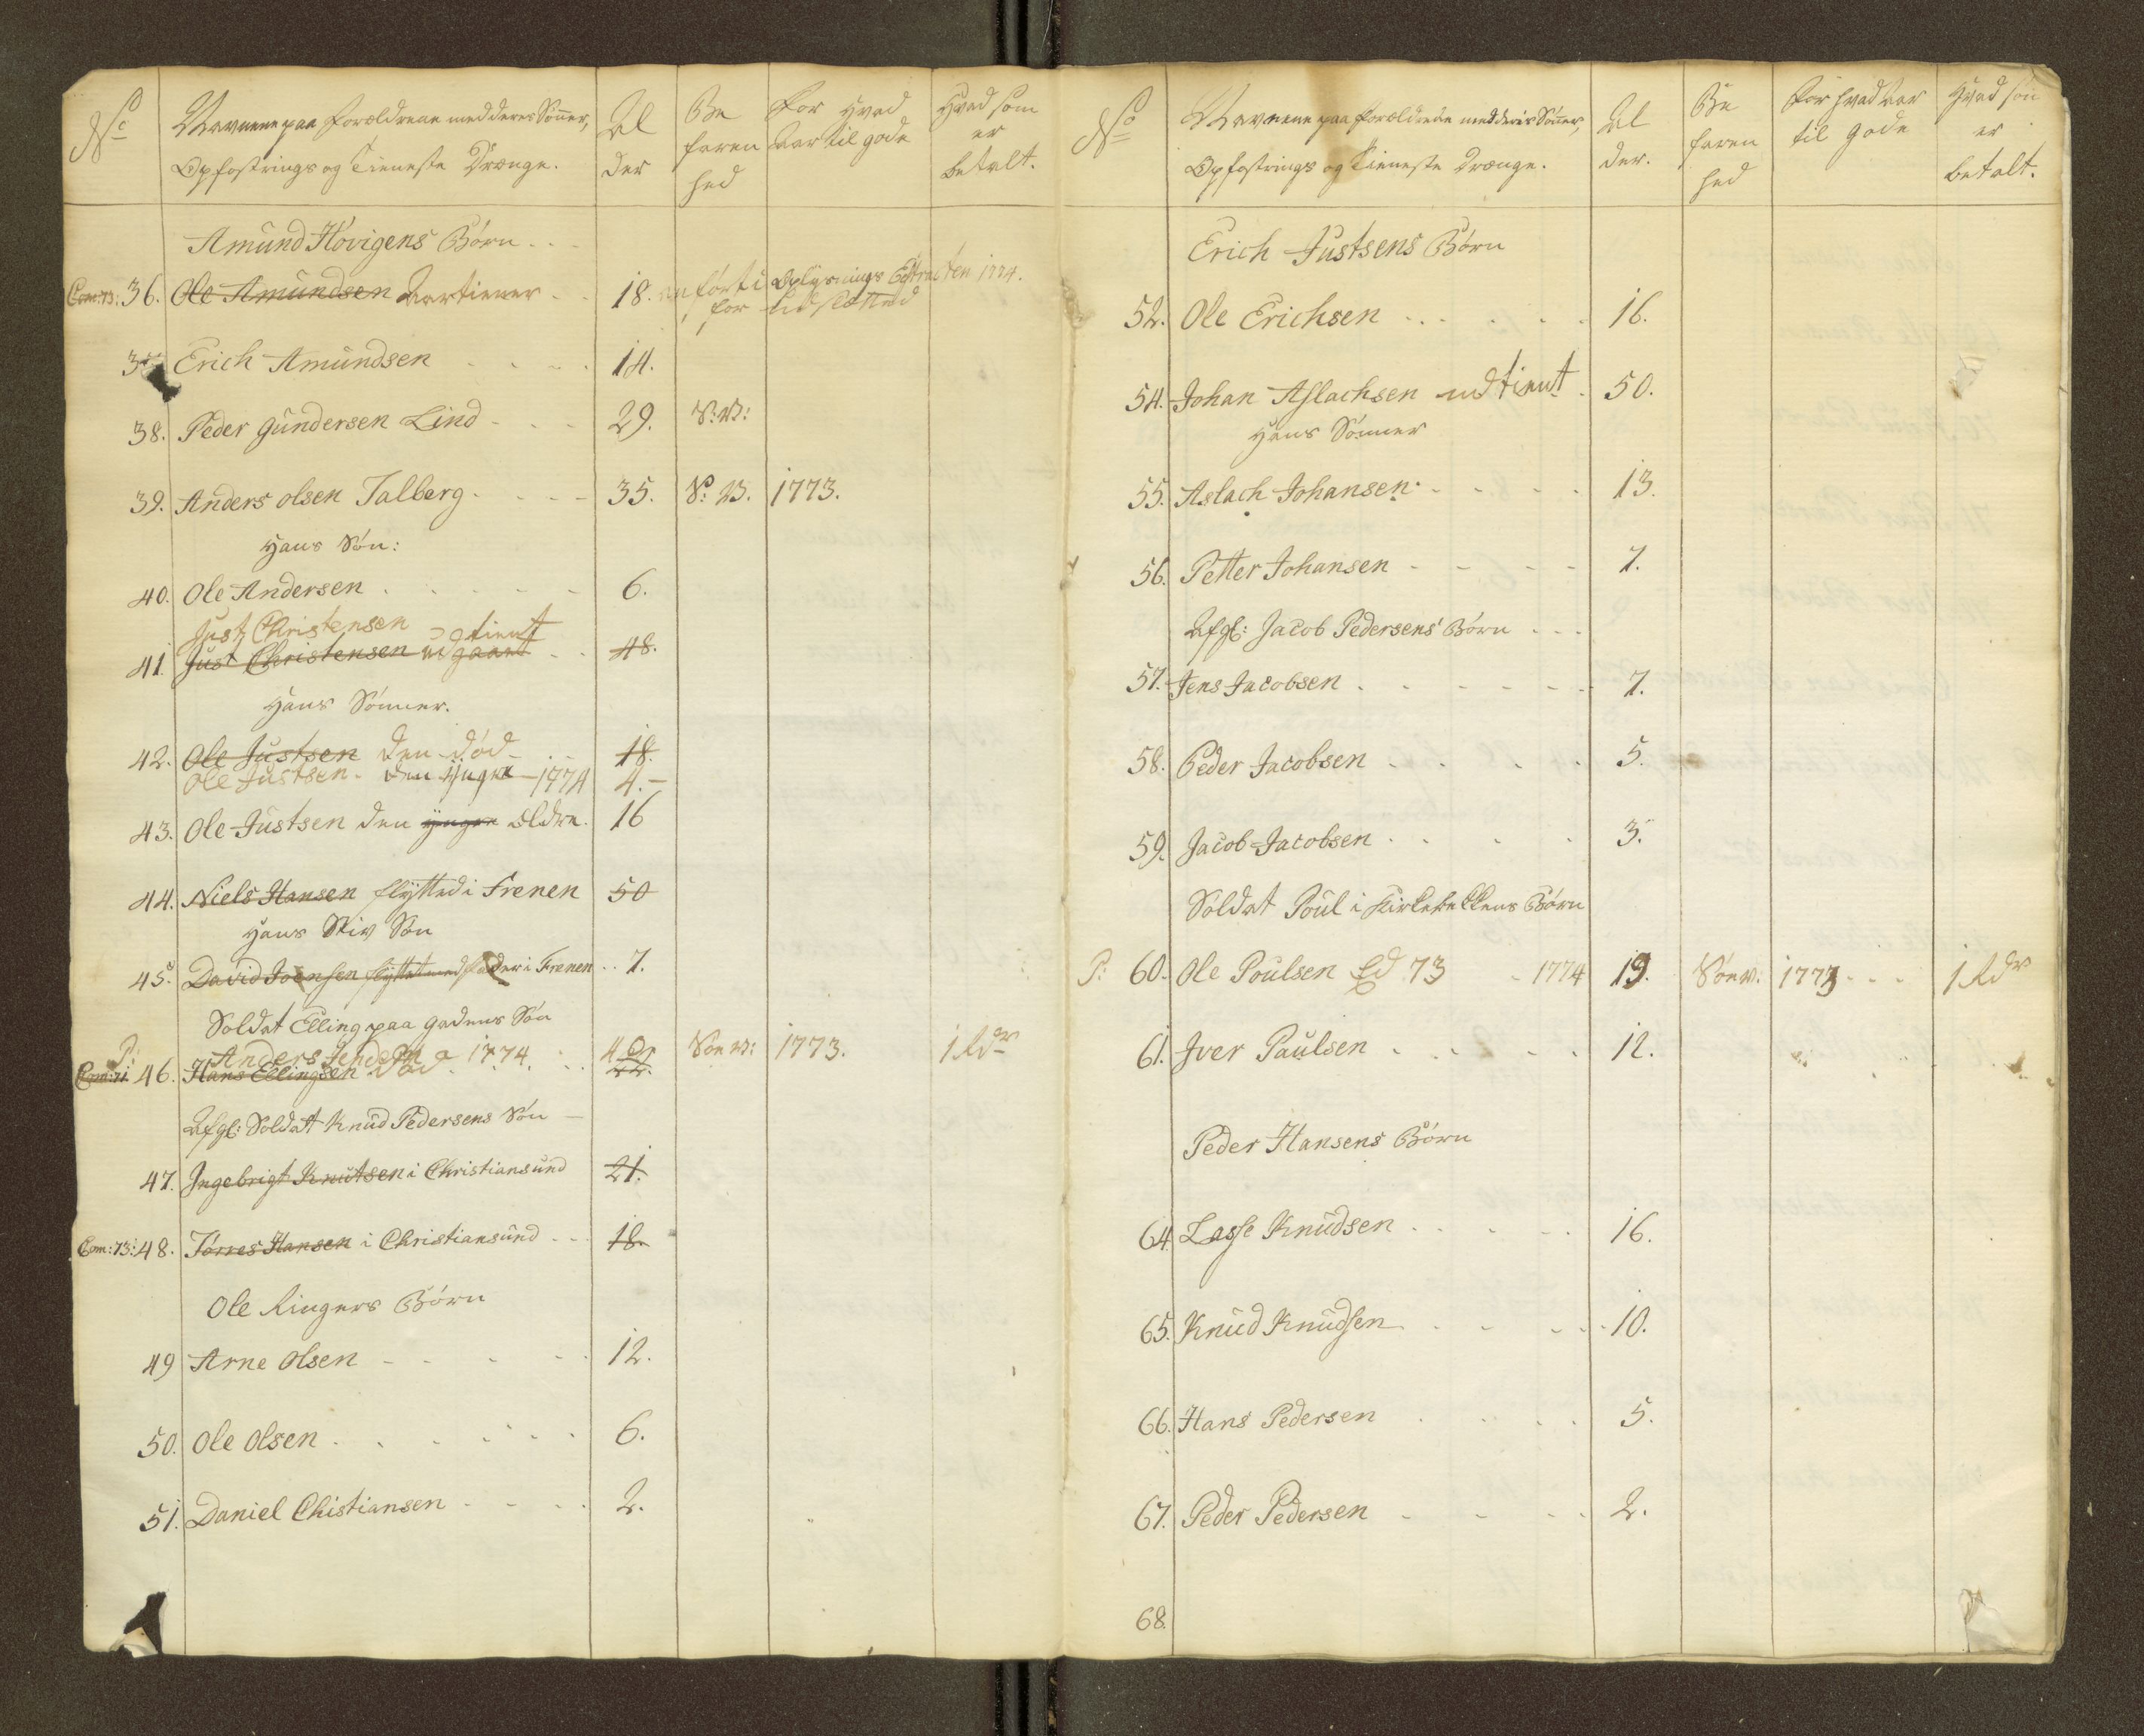 No
Navnene paa Forældrene med deres Sønner,
Opfostrings og Tieneste Drænge.
Al
der
Be
faren
hed
For Hvad
Aar til gode
Hvad som
er
betalt.
Amund Hovigens Børn . . .
Com: 73: 36. Ole Amundsen Aartiener . . 18. anført i Oplysnings Extracten 1774.
for
37 Erich Amundsen . . . . 14.
38. Peder Gundersen Lind - - - 29. S: W:
39. Anders olsen Talberg . - - - 35. S: W. 1773.
Hans Søn:
40. Ole Andersen . . . . - 6.
Just Christensen udtient
41. Just Christensen udgaaet . . 48.
Hans Sønner.
42. Ole Justsen den død . . 18.
Ole Justsen - den yngre - 1774 4. -
43. Ole Justsen den yngre ældre. 16
44. Niels Hansen flÿtted i Frenen 50
Hans Stiv Søn
45. David Joensen flyttet med fader i Frenen . . 7.
Soldat Elling paa Gadens Søn
P: Anders 1774 Søn W: 1773. 1 Rdr
Com: 71 46. Hans Ellingsen død . . . 22.
Afgl: Soldat Knud Pedersens Søn -
47. Ingebrigt Knutsen i Christiansund 21.
Com: 73: 48. Tørres Hansen i Christiansund - - 18.
Ole Ringers Børn
49 Arne Olsen - - - - - 12.
50. Ole Olsen . . . . . . 6.
51. Daniel Chistiansen - - . . 2.
No
Navnene paa Forældrene med deres Sønner,
Opfostrings og Tieneste Drænge.
Al
der.
Be
faren
hed
For hvad Aar
til gode
Hvad som
er
betalt.
Erich Justsens Børn
52. Ole Erichsen . . . . . . 16.
54. Johan Aslachsen udtient . 50.
Hans Sønner
55. Aslach Johansen . - - - - 13.
56. Petter Johansen - - - - 7.
Afgl: Jacob Pedersens Børn . . .
57. Jens Jacobsen . . . . - - 7.
58. Peder Jacobsen . . . . 5.
59. Jacob Jacobsen . . . . 3.
Soldat Poul i Kirkebakkens Børn
P: 60. Ole Poulsen Ed 73 - 1774 19. Søn W: 1773 - - - 1 Rdr
61. Iver Paulsen . . . . . 12.
Peder Hansens Børn
64. Lasse Knudsen . . . . . 16.
65. Knud Knudsen . . . . . 10.
66. Hans Pedersen . . . . 5.
67. Peder Pedersen . . . . 2.
68.